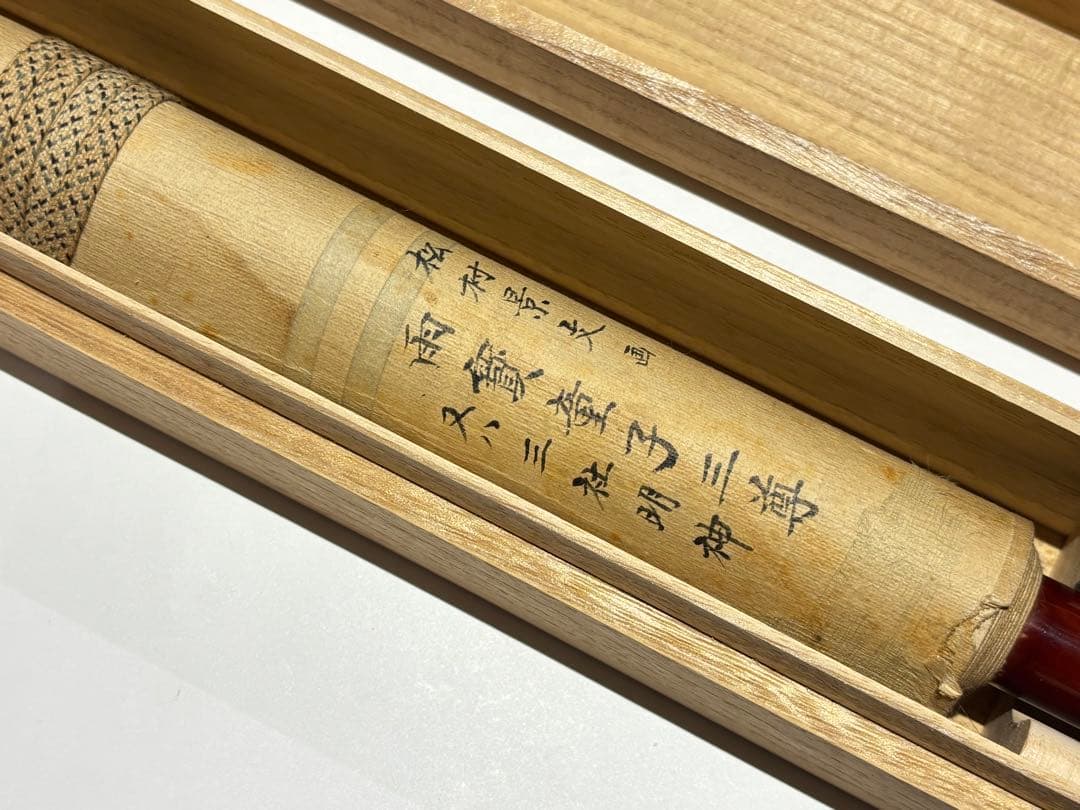 松村景文画
雨寶童子三尊
又ハ三社明神